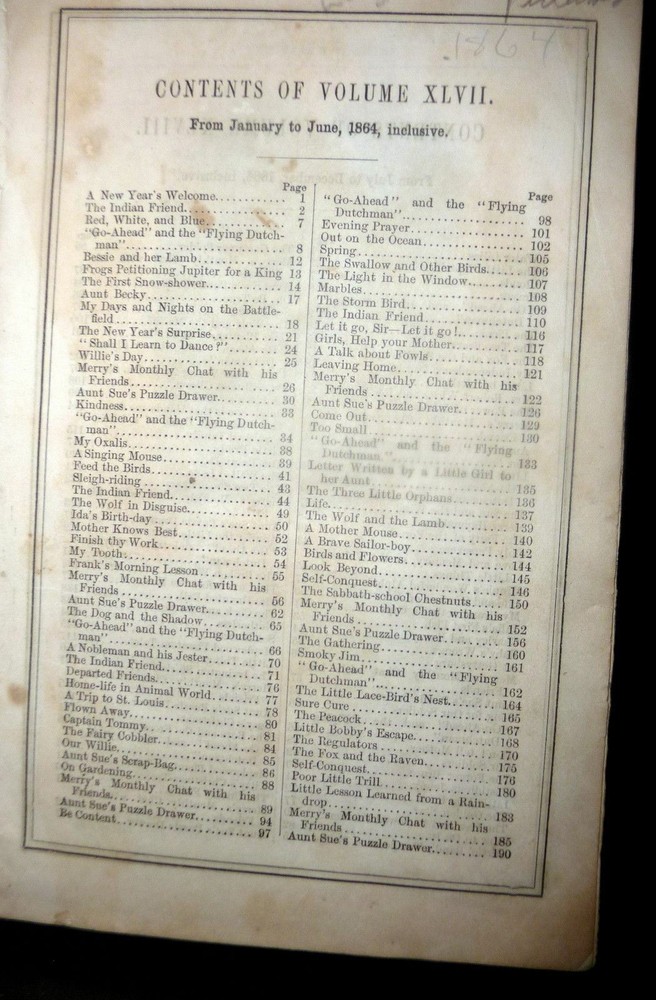 1864
CONTENTS OF VOLUME XLVII.
From January to June, 1864, inclusive.
Page
A New Year's Welcome 1
The Indian Friend 2
Red, White, and Blue 7
"Go-Ahead" and the "Flying Dutch-
man" 8
Bessie and her Lamb 12
Frogs Petitioning Jupiter for a King 13
The First Snow-shower 14
Aunt Becky 17
My Days and Nights on the Battle-
field 18
The New Year's Surprise 21
"Shall I Learn to Dance?" 24
Willie's Day 25
Merry's Monthly Chat with his
Friends 26
Aunt Sue's Puzzle Drawer 30
Kindness 33
"Go-Ahead" and the "Flying Dutch-
man" 34
My Oxalis 38
A Singing Mouse 39
Feed the Birds 41
Sleigh-riding 43
The Indian Friend 44
The Wolf in Disguise 49
Ida's Birth-day 50
Mother Knows Best 52
Finish thy Work 53
My Tooth 54
Frank's Morning Lesson 55
Merry's Monthly Chat with his
Friends 56
Aunt Sue's Puzzle Drawer 62
The Dog and the Shadow 65
"Go-Ahead" and the "Flying Dutch-
man" 66
A Nobleman and his Jester 70
The Indian Friend 71
Departed Friends 76
Home-life in Animal World 77
A Trip to St. Louis 78
Flown Away 80
Captain Tommy 81
The Fairy Cobbler 84
Our Willie 85
Aunt Sue's Scrap-Bag 86
On Gardening 88
Merry's Monthly Chat with his
Friends 89
Aunt Sue's Puzzle Drawer 94
Be Content 97
Page
"Go-Ahead" and the "Flying
Dutchman" 98
Evening Prayer 101
Out on the Ocean 102
Spring 105
The Swallow and Other Birds 106
The Light in the Window 107
Marbles 108
The Storm Bird 109
The Indian Friend 110
Let it go, Sir—Let it go! 116
Girls, Help your Mother 117
A Talk about Fowls 118
Leaving Home 121
Merry's Monthly Chat with his
Friends 122
Aunt Sue's Puzzle Drawer 126
Come Out 129
Too Small 130
"Go-Ahead" and the "Flying
Dutchman" 133
Letter Written by a Little Girl to
her Aunt 135
The Three Little Orphans 136
Life 137
The Wolf and the Lamb 139
A Mother Mouse 140
A Brave Sailor-boy 142
Birds and Flowers 144
Look Beyond 145
Self-Conquest 146
The Sabbath-school Chestnuts 150
Merry's Monthly Chat with his
Friends 152
Aunt Sue's Puzzle Drawer 156
The Gathering 160
Smoky Jim 161
"Go-Ahead" and the "Flying
Dutchman" 162
The Little Lace-Bird's Nest 164
Sure Cure 165
The Peacock 167
Little Bobby's Escape 168
The Regulators 170
The Fox and the Raven 175
Self-Conquest 176
Poor Little Trill 180
Little Lesson Learned from a Rain-
drop 183
Merry's Monthly Chat with his
Friends 185
Aunt Sue's Puzzle Drawer 190